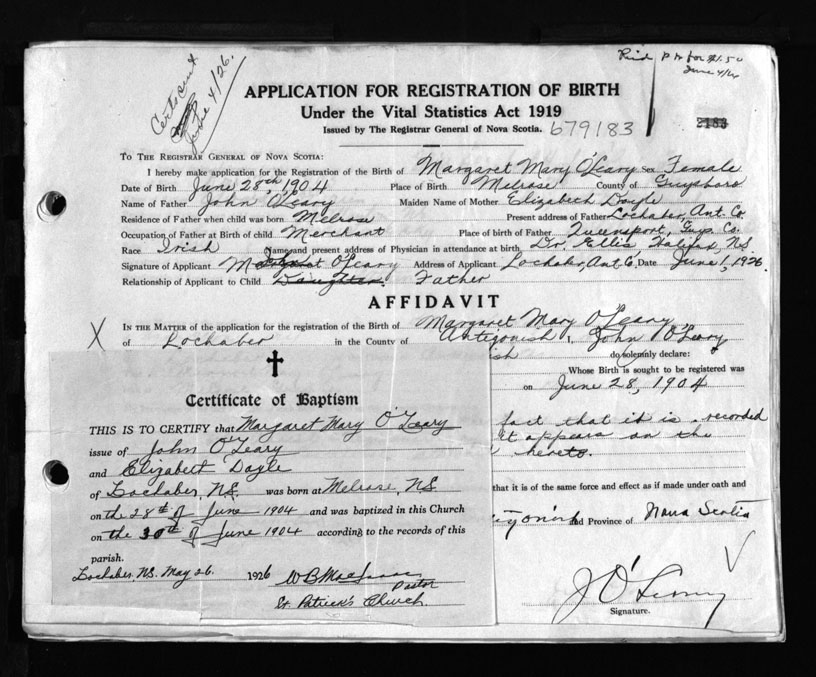 Cert sent
June 4/26.
Paid P.N. for $1.50
June 4/26
APPLICATION FOR REGISTRATION OF BIRTH
Under the Vital Statistics Act 1919
Issued by The Registrar General of Nova Scotia. 679183
2183
TO THE REGISTRAR GENERAL OF NOVA SCOTIA:
I hereby make application for the Registration of the Birth of Margaret Mary O'Leary Sex Female
Date of Birth June 28th, 1904 Place of Birth Melrose County of Guysboro
Name of Father John O'Leary Maiden Name of Mother Elizabeth Doyle
Residence of Father when child was born Melrose Present address of Father Lochaber, Ant. Co.
Occupation of Father at Birth of child Merchant Place of birth of Father Queensport, Guys. Co.
Race Irish Name and present address of Physician in attendance at birth Dr. Ellis Halifax, N.S.
Signature of Applicant John O'Leary Address of Applicant Lochaber, Ant Co, Date June 1, 1926.
Relationship of Applicant to Child Daughter. Father
AFFIDAVIT
X IN THE MATTER of the application for the registration of the Birth of Margaret Mary O'Leary
of Lochaber in the County of Antigonish I, John O'Leary
ish do solemnly declare:
Whose Birth is sought to be registered was
on June 28, 1904
fact that it is recorded
it appears on the
hereto.
that it is of the same force and effect as if made under oath and
tigonish and Province of Nova Scotia
J O'Leary
Signature.
Certificate of Baptism
THIS IS TO CERTIFY that Margaret Mary O'Leary
issue of John O'Leary
and Elizabeth Doyle
of Lochaber, N.S. was born at Melrose, N.S.
on the 28th of June 1904 and was baptized in this Church
on the 30th of June 1904 according to the records of this
parish.
Lochaber, N.S. May 26. 1926 W B MacIsaac
Pastor
St Patrick's Church